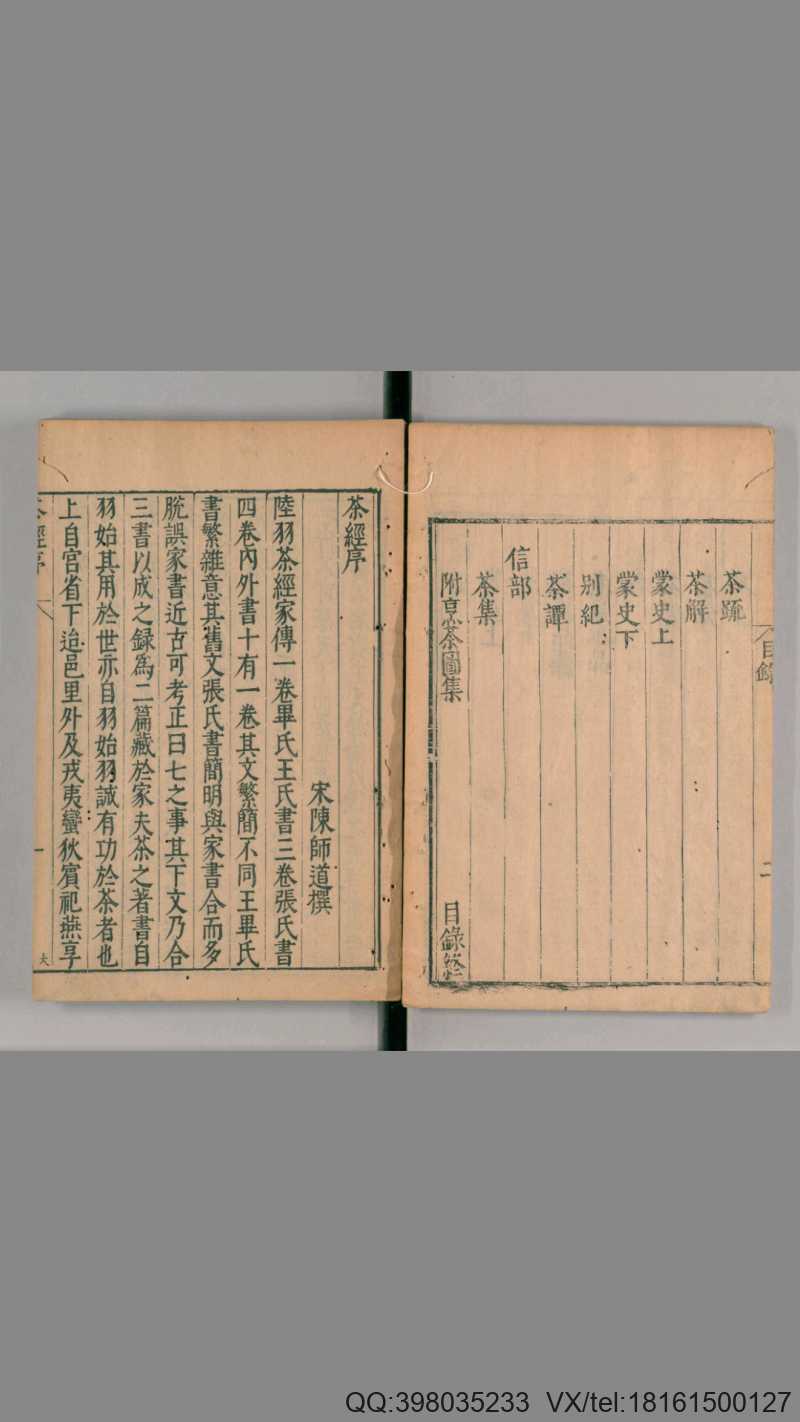 目錄
二
茶疏
茶解
蒙史上
蒙史下
别紀
茶譚
信部
茶集
附烹茶圖集
目錄終
茶經序
宋陳師道撰
陸羽茶經家傳一卷畢氏王氏書三卷張氏書
四卷內外書十有一卷其文繁簡不同王畢氏
書繁雜意其舊文張氏書簡明與家書合而多
脫誤家書近古可考正曰七之事其下文乃合
三書以成之録為二篇藏於家夫茶之著書自
羽始其用於世亦自羽始羽誠有功於茶者也
上自宮省下逮邑里外及戎夷蠻狄賓祀燕享
茶經序
一
夫
QQ:398035233 VX/tel:18161500127